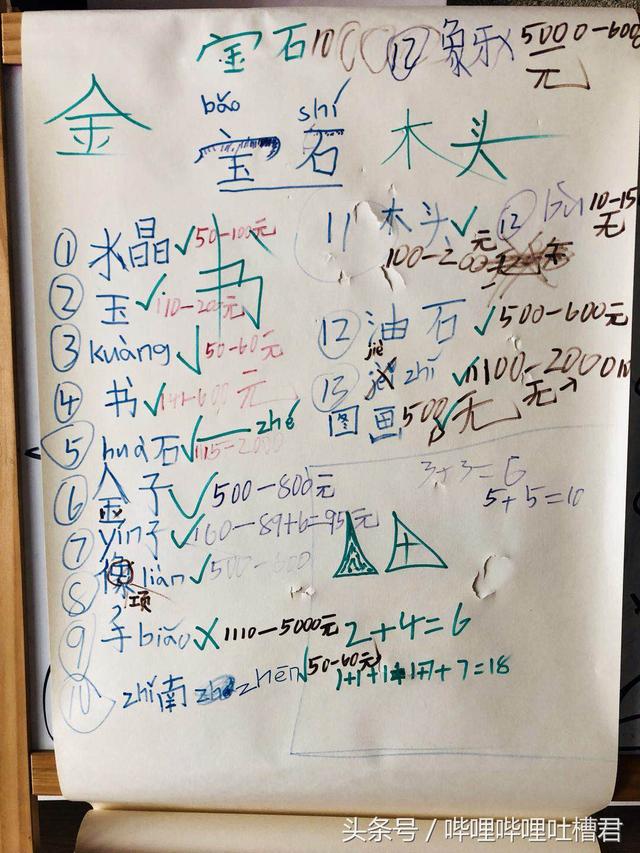 宝石 1000 ⑫ 象牙 X 5000-600
元
金
bǎo shí
宝石 木头
① 水晶 ✓ 50-100元
书
② 玉 ✓ 110-200元
③ kuàng ✓ 50-60元
④ 书 ✓ 元
⑤ huà石 ✓ zhé
1115-2000
⑥ 金子 ✓ 500-800元
⑦ yín子 ✓ 160-89+6=95元
⑧ liàn ✓ 500-600
项
⑨ 手biǎo X 1110-5000元
⑩ zhǐ南 zhēn 50-60元
11 木头 ✓ 元
100-200
⑫ 10-15
无
⑫ 油石 ✓ 500-600元
⑬ jiè zhǐ ✓ 1100-2000
jiè
无
图画 500 ✓ 无
3+3=6
5+5=10
2+4=6
7=18
头条号 / 哔哩哔哩吐槽君